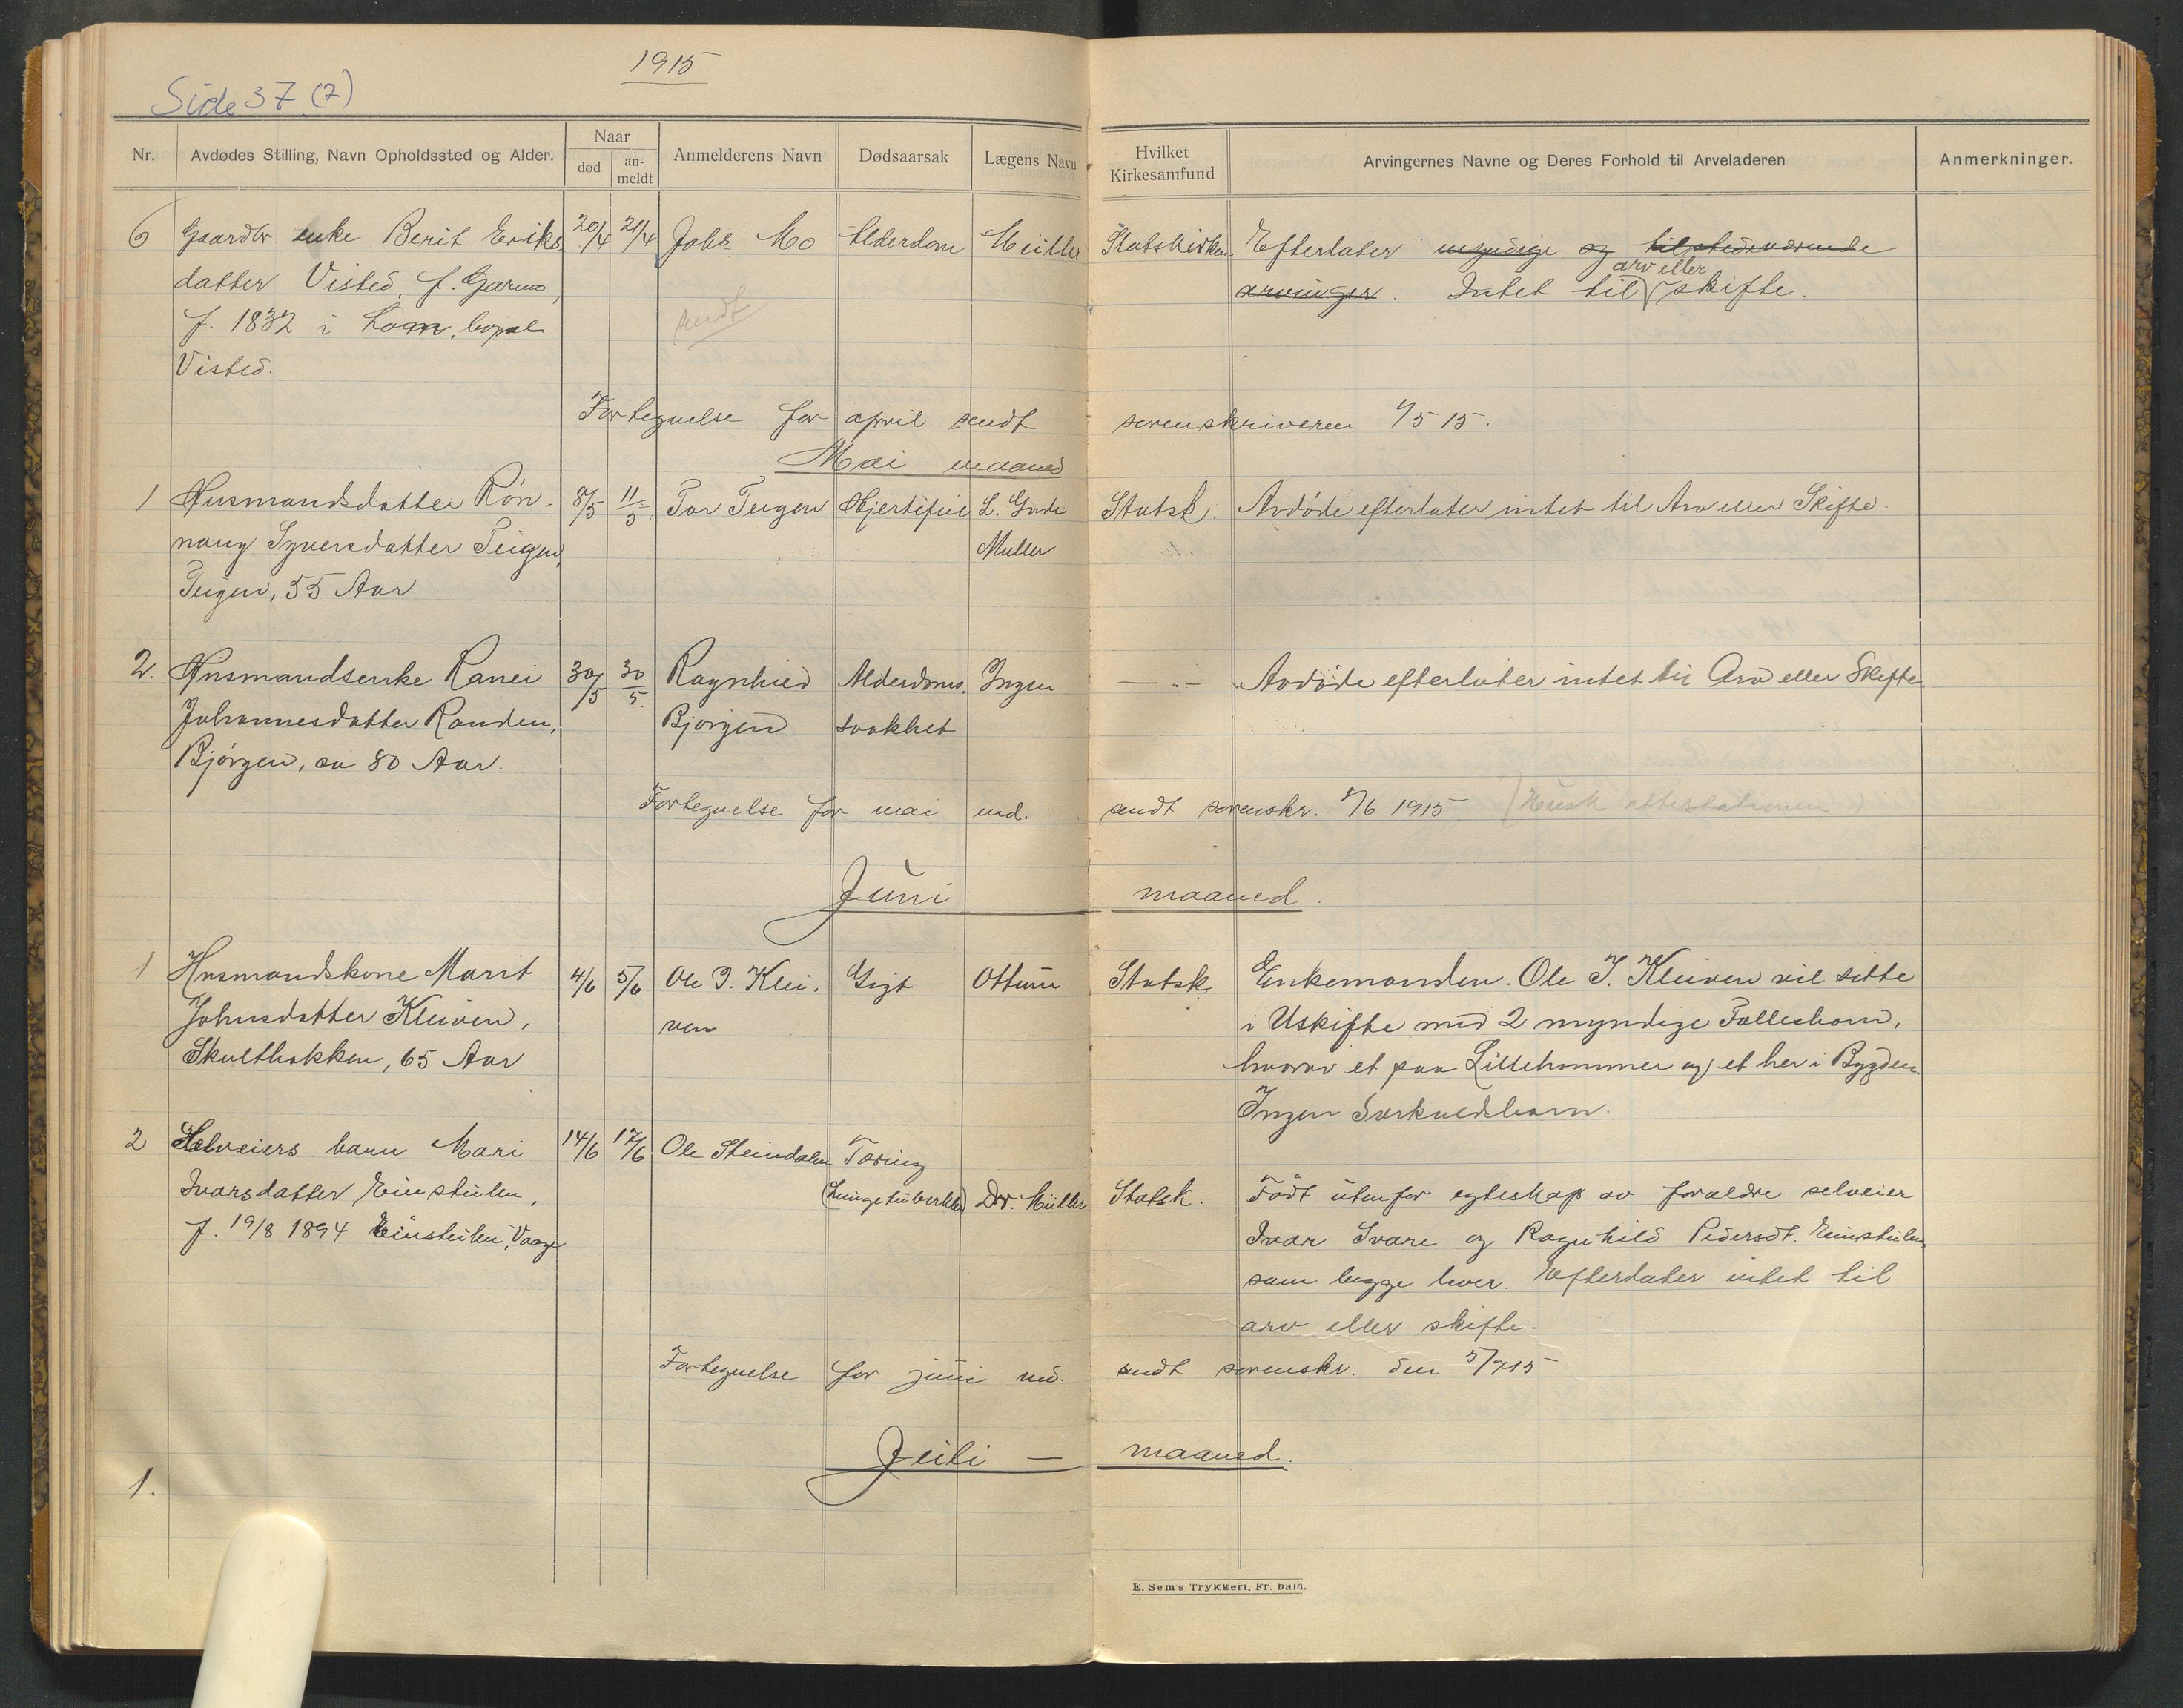 1915
Side 37 (7)
Nr.
Avdødes Stilling, Navn Opholdssted og Alder.
Naar
død
an-
meldt
Anmelderens Navn
Dødsaarsak
Lægens Navn
Hvilket
Kirkesamfund
Arvingernes Navne og Deres Forhold til Arveladeren
Anmerkninger.
6 Gaardbr. enke Berit Eriks 20/4 21/4 Johs Mo Alderdom Müller Statskirken Efterlater myndige og tilstedeværende
datter Visted, f. Garmo, arvinger. Intet til arv eller skifte.
f. 1832 i Lom, bopæl sendt
Visted.
Fortegnelse for april sendt sorenskriveren 1/5 15.
Mai maaned
1 Husmandsdatter Røn- 8/5 11/5 Tor Teigen Hjertefeil L. Gude Statsk. Avdøde efterlater intet til Arv eller Skifte.
naug Syversdatter Teigen, Muller
Teigen, 55 Aar
2. Husmandsenke Ranei 30/5 30/5. Ragnhild Alderdoms- Ingen — " — Avdøde efterlater intet til Arv eller Skifte.
Johannesdatter Randen, Bjørgen svakhet
Bjørgen, ca 80 Aar.
Fortegnelse for mai md. sendt sorenskr. /6 1915 (Husk attestationen)
Juni maaned.
1 Husmandskone Marit 4/6 5/6 Ole J. Klei- Gigt Ottum Statsk. Enkemanden Ole J. Kleiven vil sitte
Johnsdatter Kleiven, ven i Uskifte med 2 myndige Fællesbarn,
Skulthakken, 65 Aar hvorav et paa Lillehammer og et her i Bygden.
Ingen Særkuldbarn.
2 Selveiers barn Mari 14/6 17/6 Ole Steindalen Tæring
Ivarsdatter Einstulen, (Lungetuberkler) Dr. Müller Statsk. Født utenfor egteskap av forældre selveier
f. 19/8 1894 Einstulen, Vaage Ivar Svare og Ragnhild Pedersdt. Einstulen
som begge lever. Efterlater intet til
arv eller skifte.
Fortegnelse for juni md. sendt sorenskr. den 5/7 15
Juli — maaned.
1.
E. Sem's Trykkeri, Fr. hald.